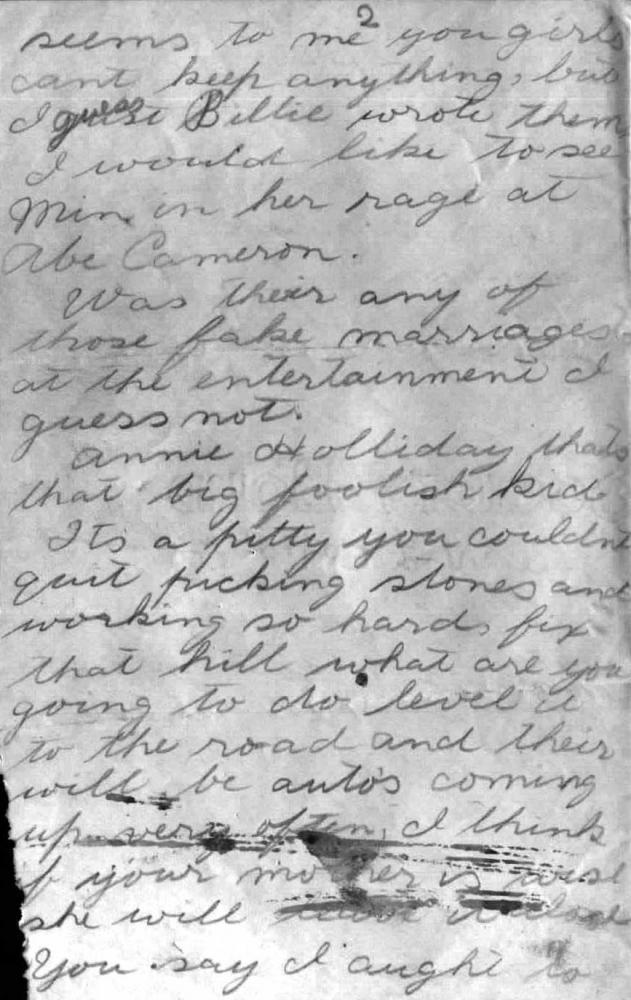 2
seems to me you girls
cant keep anything, but
I guess Billie wrote them
I would like to see
Min in her rage at
Abe Cameron.
Was their any of
those fake marriages
at the entertainment I
guess not.
Annie Holliday thats
that big foolish kid
Its a pitty you couldnt
quit picking stones and
working so hard, fix
that hill what are you
going to do level it
to the road and their
will be autos coming
up very often, I think
if your mother is wise
she will leave it alone
You say I aught to